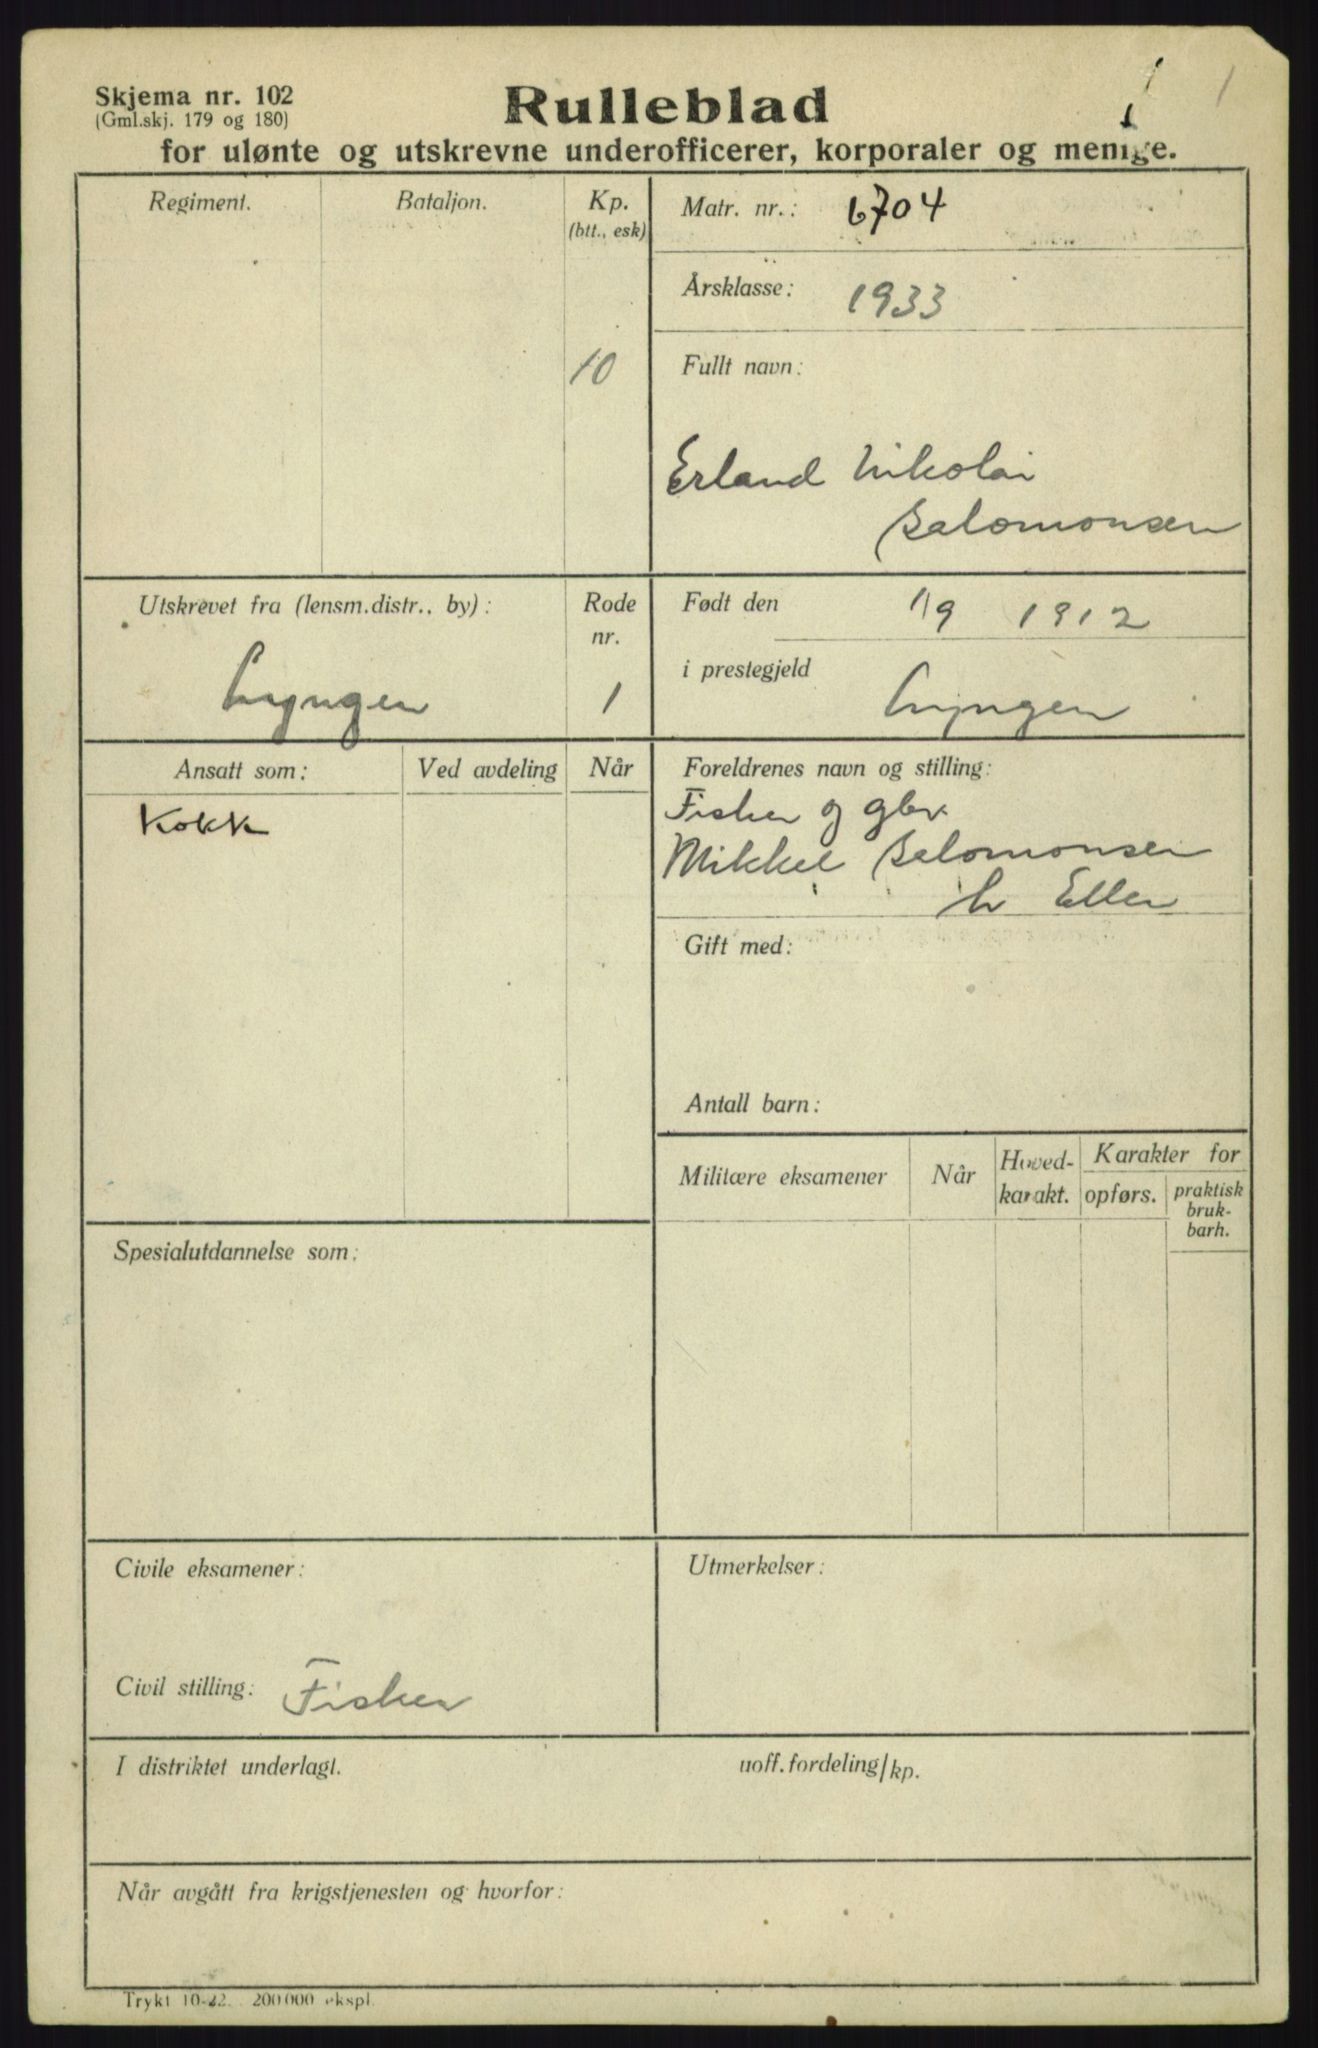 Skjema nr. 102
(Gml.skj. 179 og 180)
Rulleblad
1
for ulønte og utskrevne underofficerer, korporaler og menige.
Regiment.
Bataljon.
Kp.
(btt., esk)
10
Matr. nr.: 6704
Årsklasse: 1933
Fullt navn:
Erland Nikolai
Salomonsen
Utskrevet fra (lensm.distr., by):
Lyngen
Rode
nr.
1
Født den 1/9 1912
i prestegjeld Lyngen
Ansatt som:
Ved avdeling
Når
Kokk
Foreldrenes navn og stilling:
Fisker og gbr.
Mikkel Salomonsen
h Ellen
Gift med:
Antall barn:
Militære eksamener
Når
Hoved-
karakt.
Karakter for
opførs.
praktisk
bruk-
barh.
Spesialutdannelse som:
Civile eksamener:
Civil stilling: Fisker
Utmerkelser:
I distriktet underlagt.
uoff. fordeling/kp.
Når avgått fra krigstjenesten og hvorfor:
Trykt 10-22. 200 000 ekspl.